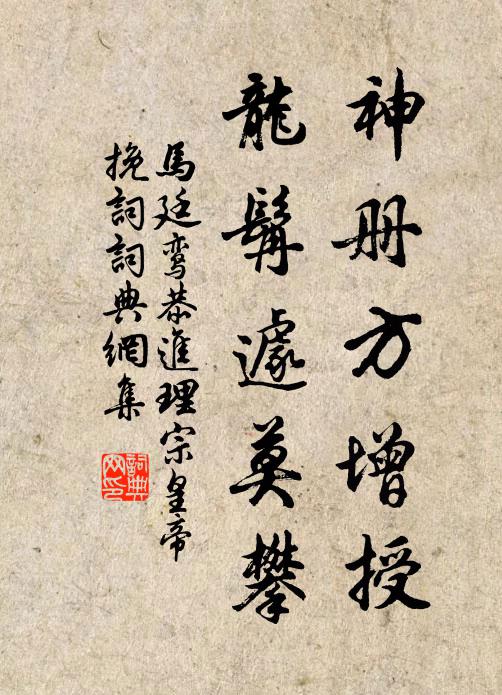 神册方增授
龍髯遽莫攀
馬廷鸞恭進理宗皇帝
挽詞詞典網集
詞典
网印